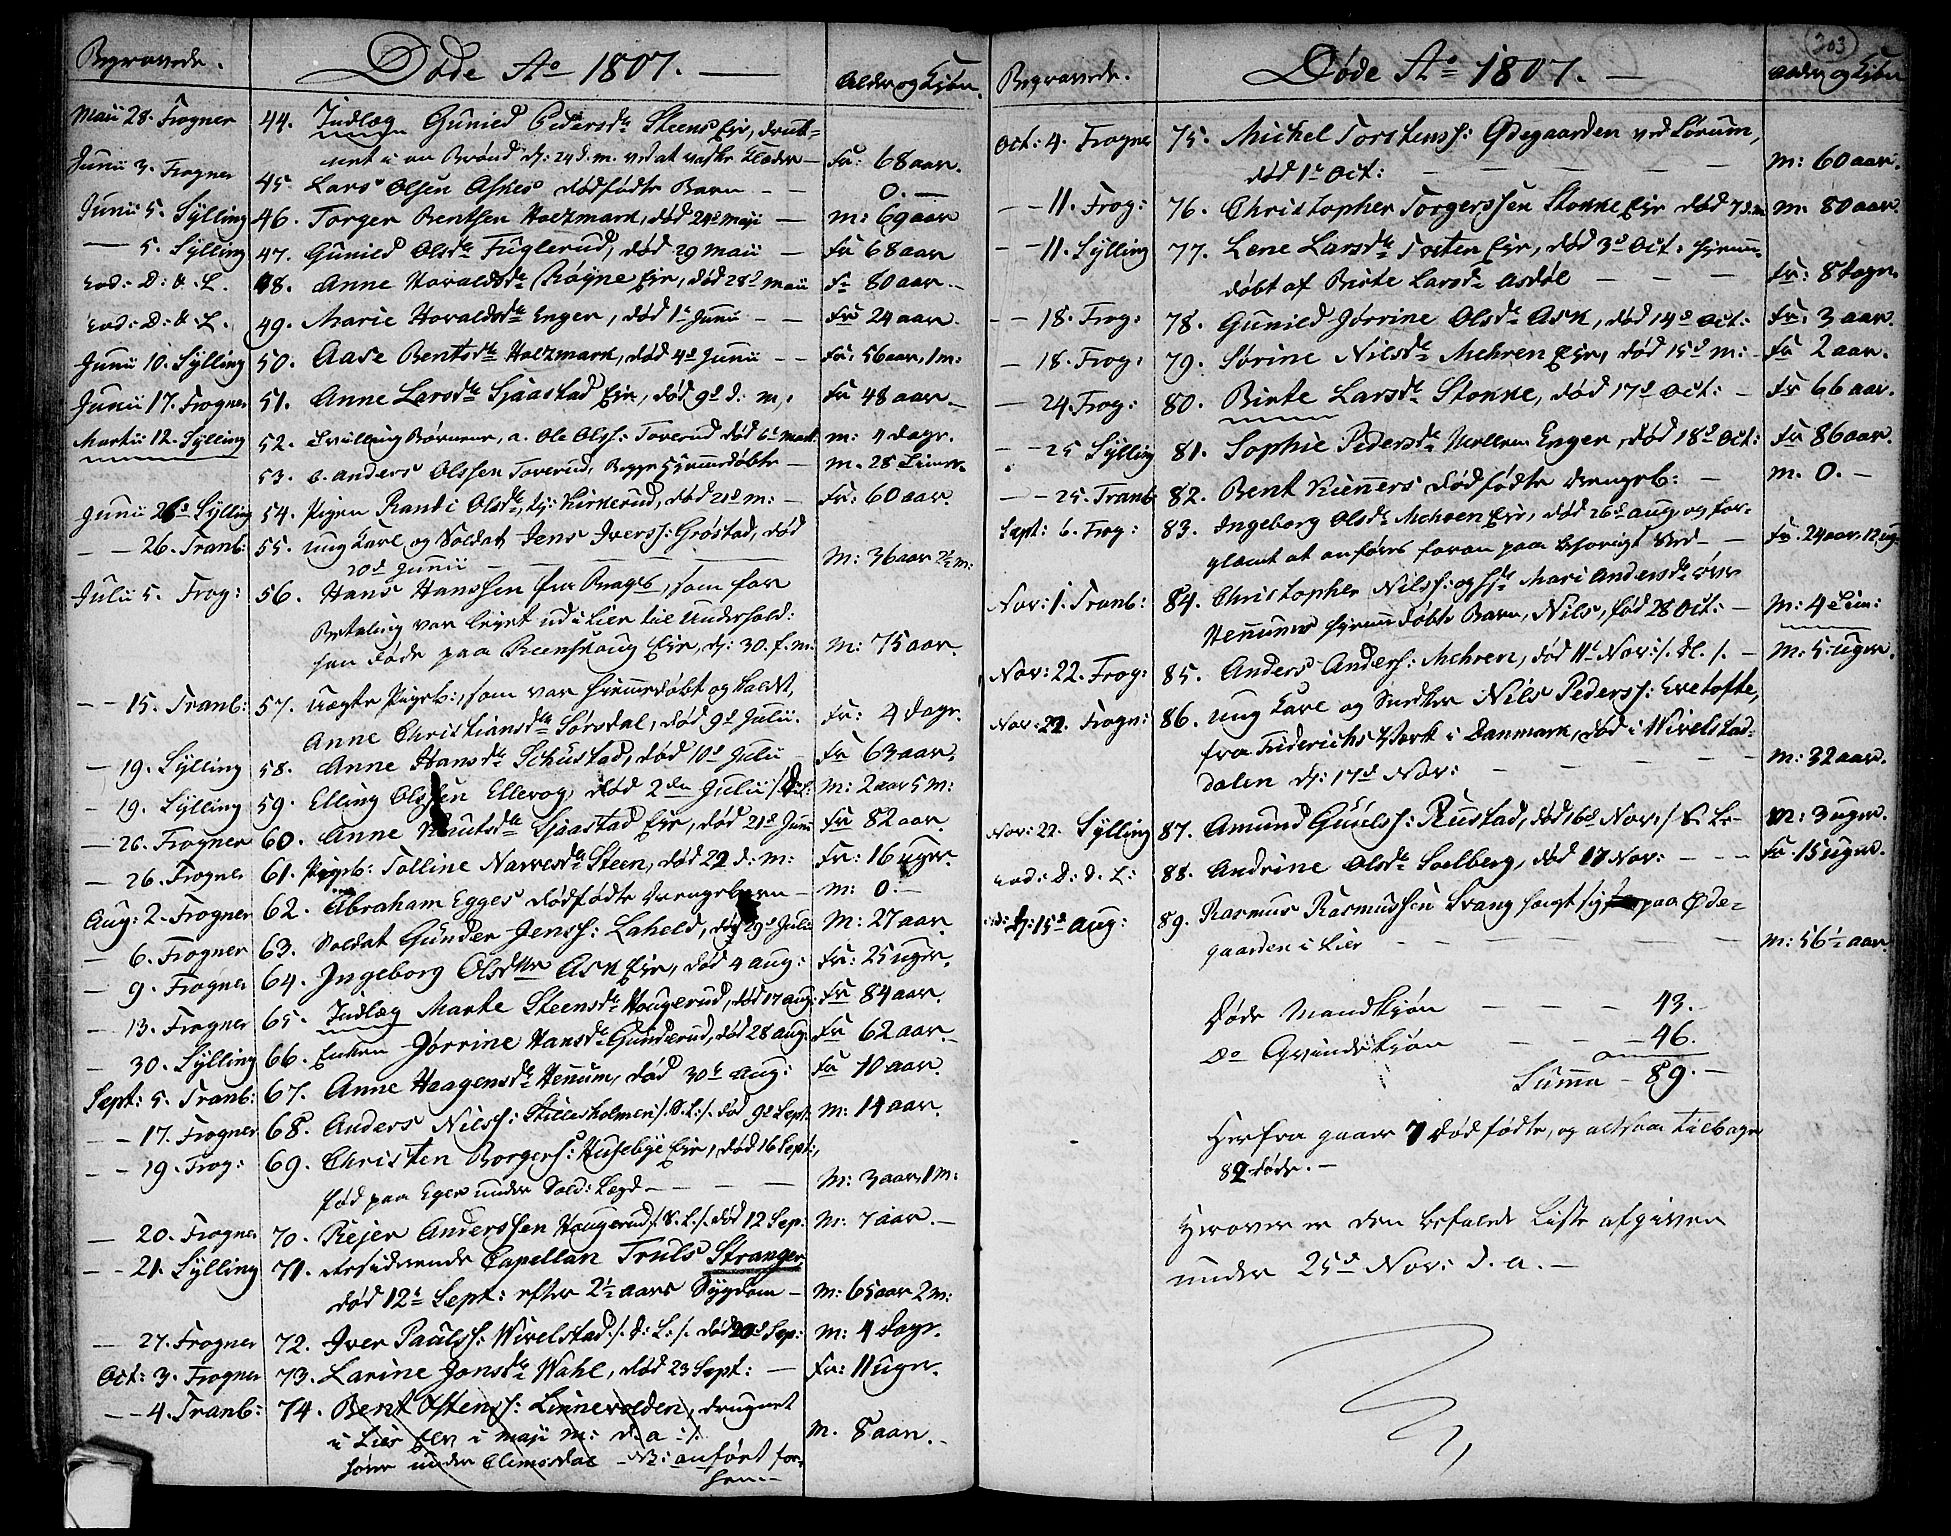 Begravede.
Døde Ao 1807.
Alder og Kjön.
Maii 28. Frogner 44. Indlæg Gunild Pedersdr Steens Eje, druk-
net i en Brønd d: 24 d. m. ved at vaske Klæder - Fr: 68 aar.
Junii 3. Frogner 45. Lars Olsen Askes dødfødte Barn - - 0. -
Junii 5. Sylling 46. Torger Bentsen Holtzmark, død 24d maji - M: 69 aar
- 5. Sylling 47. Gunild Olsdr Fuglerud, død 29 Maii - Fr 68 aar
eod: D: & L. 48. Anne Haraldsdr Røgne Eje, død 28d Maii Fr 80 aar.
eod: D: & L. 49. Marie Haraldsdr Enger, død 1e Junii - - Fr 24 aar.
Junii 10. Sylling 50. Aase Bentsdr Holtzmark, død 4d Junii - - Fr: 56 aar, 1 m:
Junii 17. Frogner 51. Anne Larsdr Sjaastad Eje, død 9d d: m: Fr 48 aar -
Martii 12. Sylling 52. Tvilling Børnene, a. Ole Olss: Toverud død 6te Mart: m: 4 dage.
53. b. Anders Olssen Toverud, Begge hjemmedøbte - m. 28 Timer.
Junii 26d Sylling 54. Pigen Randi Olsdr, Kirkerud, død 21d m: - Fr: 60 aar.
- - 26. Tranb: 55. Ung Karl og Soldat Jens Iverss: Grøstad, død
20d Junii - - - M: 36 aar 2½ m:
Julii 5. Frog: 56. Hans Hanssen fra Brags, som for
Betaling var lejet ud i Lier til Underhold:
han døde paa Reenskoug Eje, d: 30. f. m: M: 75 aar.
- - 15. Tranb: 57. Uægte Pigeb:, som var hjemmedøbt og kaldt,
Anne Christiansdr Sørsdal, død 9d Julii. Fr: 4 dage.
- 19. Sylling 58. Anne Hansdr Schustad, død 10d Julii Fr 63 aar.
- 19. Sylling 59. Elling Olssen Ellevog, død 2den Julii M: 2 aar 5 m:
- 26. Frogner 60. Anne Knutsdr Sjaastad Eje, død 21d Junii Fr 82 aar.
- 26. Frogner 61. Pigeb: Tolline Narvesdr Steen, død 22 d: m: Fr: 16 uger.
Aug: 2. Frogner 62. Abraham Egges dødfødte Drengebarn - m: 0. -
- 6. Frogner 63. Soldat Gunder Jenss: Laheld, død 29d Julii M: 27 aar.
- 9. Frogner 64. Ingeborg Olsdtr Ask Eje, død 4 Aug: Fr: 25 uger.
- 13. Frogner 65. Indlæg Marte Steensdr Hougerud, død 17 aug: Fr 84 aar.
- 30. Sylling 66. Enken Jørrine Hansdr Gunderud, død 28 aug: Fr 62 aar.
Sept: 5. Tranb: 67. Anne Haagensdr Hennum, død 30te aug: Fr 70 aar.
- - 17. Frogner 68. Anders Nilss: Stillesholmen /. S. L: /. død 9d Sept: m: 14 aar.
- - 19. Frog: 69. Christen Borgers: Husebye Eje, død 16 Sept:,
født paa Eger under Sold: Lægd - - - M: 3 aar, 1 M:
- 20. Frogner 70. Rejer Anderssen Hougerud /. S. L: /. død 12 Sep: M: 7 aar. -
- - 21. Sylling 71. Residerende Capellan Truls Stranger,
død 12te Sept: efter 2½ aars Sygdom - M: 65 aar 2 M:
- 27. Frogner 72. Iver Paulss: Wivelstad /. d: L: /. død 20d Sep: M: 4 dage.
Oct: 3. Frogner 73. Larine Jonsdr Wahl, død 23 Sept: - Fr: 11 uger.
- - 4. Tranb: 74. Bent Ostenss: Linnevolden, druknet
i Lier Elv i Maji M: d. a: M. 8 aar.
hører under Elmesdal - NB: anført for-
hen. -
303
Begravede.
Døde Ao 1807.
Alder og Kjön
Oct: 4. Frogner 75. Michel Torstenss: Ødegaarden ved Lørum,
død 1e Oct: - - - - M: 60 aar.
- - 11. Frog: 76. Christopher Torgerssen Stokke Eje død 7 d. m M: 80 aar.
- - 11. Sylling 77. Lene Larsdr Tosten Eje, død 3d Oct: hjemme-
døbt af Birte Larsdr Asdøl - - - Fr: 8 dage.
- - 18. Frog: 78. Gunild Jørrine Olsdr Ask, død 14d Oct: Fr: 3 aar.
- 18. Frog: 79. Sørine Nilsdr Mehren Eje, død 15d m: - Fr 2 aar.
- 24 Frog: 80. Birte Larsdr Stokke, død 17d Oct: - Fr 66 aar.
- - 25 Sylling 81. Sophie Pedersdr Mellem Enger, død 18d Oct: Fr 86 aar.
- - 25. Tranb: 82. Bent Kinners dødfødte Drengeb: - M: 0. -
Sept: 6. Frog: 83. Ingeborg Olsdr Mehren Eje, død 26d aug, og for-
glemt at anføres foran paa behørigt Sted - - Fr: 24 aar, 12 ug:
Nov: 1. Tranb: 84. Christopher Nilss: og H: Mari Andersdr øvre
Hennums hjemmedøbte Barn, Nils, fød 28 Oct: - M: 4 Tim:
Nov: 22. Frog: 85. Anders Anderss: Mehren, død 11te Nov: /. N. /. - M: 5 uger.
Nov: 22. Frogn: 86. Ung Karl og Snedker Nils Pederss: Evetofte,
fra Friderichs Værk i Danmark, død i Wivelstad-
dalen d: 17d Nov: - - - - M: 32 aar.
Nov: 22. Sylling 87. Amund Gulls: Rustad, død 16d Nov: /. S. L: - M: 3 uger.
eod: D: d. L: 88. Andrine Olsdr Solberg, død 17 Nov: - - - Fr 15 uger.
d: 15d aug: 89. Rasmus Rasmussen Svang hængt sig paa Øde-
gaarden i Lier - - - - M: 56½ aar.
Døde Mandkjøn - - - 43.
Do Qvindekjøn - - - 46.
Summa - 89. -
Herfra gaaer 7 dødfødte, og altsaa tilbage
82 døde. -
Herover er den befalede Liste afgiven
under 25d Nov: d. a. -